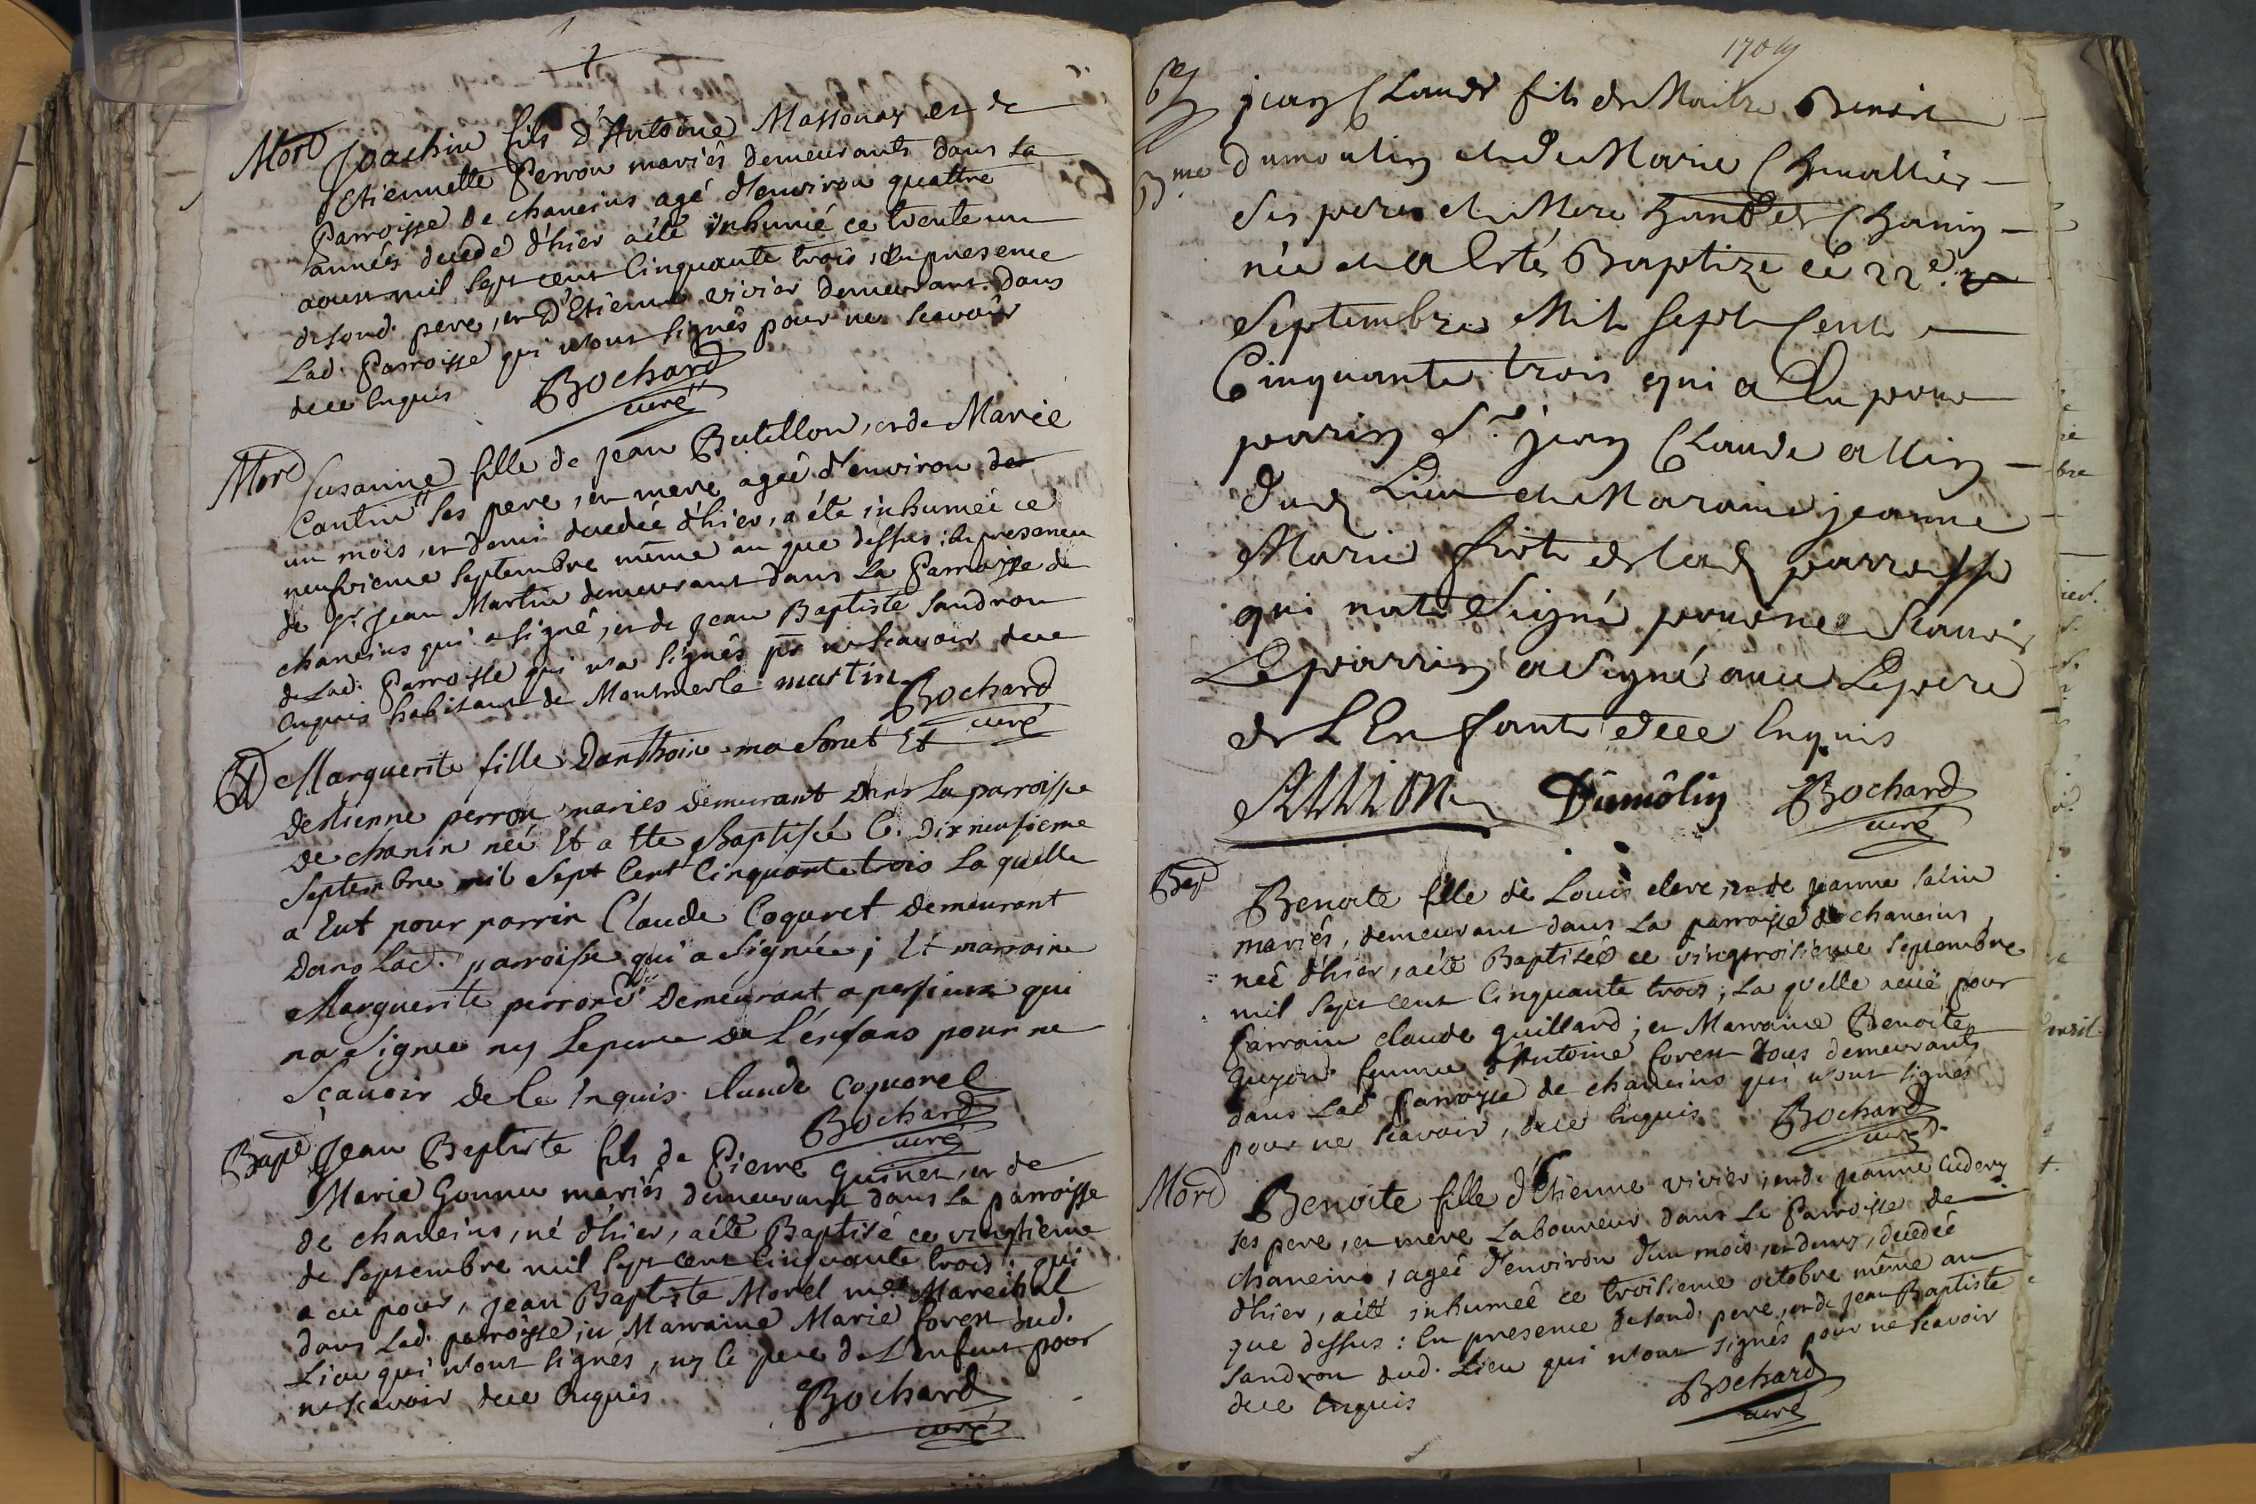 Mort Joachin fils d'Antoine Massonay et de
Etiennette Perron mariés demeurants dans La
Parroisse de chaneins agé d'environ quattre
années decedé d'hier aété inhumé ce trente un
aoust mil sept cent Cinquante trois ; En presence
desond. pere, et d'Etienne vivier demeurant dans
Lad. Parroisse qui n'ont signés pour ne scavoir
dece Enquis Bochard
curé
Mort Susanne fille de jean Butillon, et de Marie
Cantin ses pere, et mere ageé d'environ de
un mois, et demi decedeé d'hier, a été inhumeé ce
neufvieme Septembre même an que dessus : En presence
de Sr. Jean Martin demeurant dans La Parroisse de
chaneins qui a signé, et de jean Baptiste Sandron
de Lad. Parroisse qui n'a signés pr ne scavoir dece
enquis habitant de Montmerle martin Bochard
curé
Marguerite fille Danthoine ma Sonet Et
destienne perron maries demeurant dans La parroisse
de chanin neé Et a Ete Baptiseé Ce dix neufieme
Septembre mil Sept Cent Cinquante trois La quelle
a Eut pour parrin Claude Coquret demeurant
dans Lad. parroisse qui a Signeé ; Et marraine
Marguerite perron demeurant a pesieux qui
na Signeé ny Lepere de L'enfans pour ne
Sçavoir de Ce Enquis Claude coquorel
Bochard
curé
Bapt Jean Baptiste fils de Pierre Guinet, et de
Marie Gonnu mariés demeurant dans La parroisse
de chaneins, né d'hier, aété Baptisé ce vingtieme
de Septembre mil Sept cent Cinquante trois : qui
a eu pour, jean Baptiste Morel me Marechal
dans Lad. parroisse ; et Marraine Marie forest dud.
Lieu qui n'ont signés, ny le pere de L'enfent pour
ne scavoir dece Enquis Bochard
curé
1709
jean Claude fils de Maitre Benoit
dumoulin et de Marie Chevallier
Ses peres et Mere de Chanin
née et a Esté Baptize ce 22e.
Septembre Mil Sept Cent
Cinquante trois qui a Eu pour
parin Sr. jean Claude allion
dud Lieu et Maraine jeanne
Marie de lad parroisse
qui nat Signé pour ne Scavoir
Leparrin a Signé avec Lepere
de L'Enfant dece Enquis
Allion Dumôlin Bochard
curé
Bap Benoite fille de Louis eleve, et de jeanne Salin
mariés, demeurant dans La parroisse de chaneins,
neé d'hier, aété Baptiseé ce vingtroisieme Septembre
mil Sept cent Cinquante trois ; La qu'elle aeüe pour
Parrain claude guillard ; et Marraine Benoite
Guyon femme d'Antoine forest Tous demeurants
dans Lad Parroisse de chaneins qui n'ont signés
pour ne scavoir, dece Enquis Bochard
curé
Mort Benoite fille d'Etienne vivier, et de jeanne
ses pere, et mere Laboureur dans La Parroisse de
chaneins, ageé d'environ d'un mois, et demy, decedeé
d'hier, aété inhumeé ce troisieme octobre même an
que dessus : En presence desond. pere, et de jean Baptiste
Sandron dud. Lieu qui n'ont signés pour ne scavoir
dece Enquis Bochard
curé